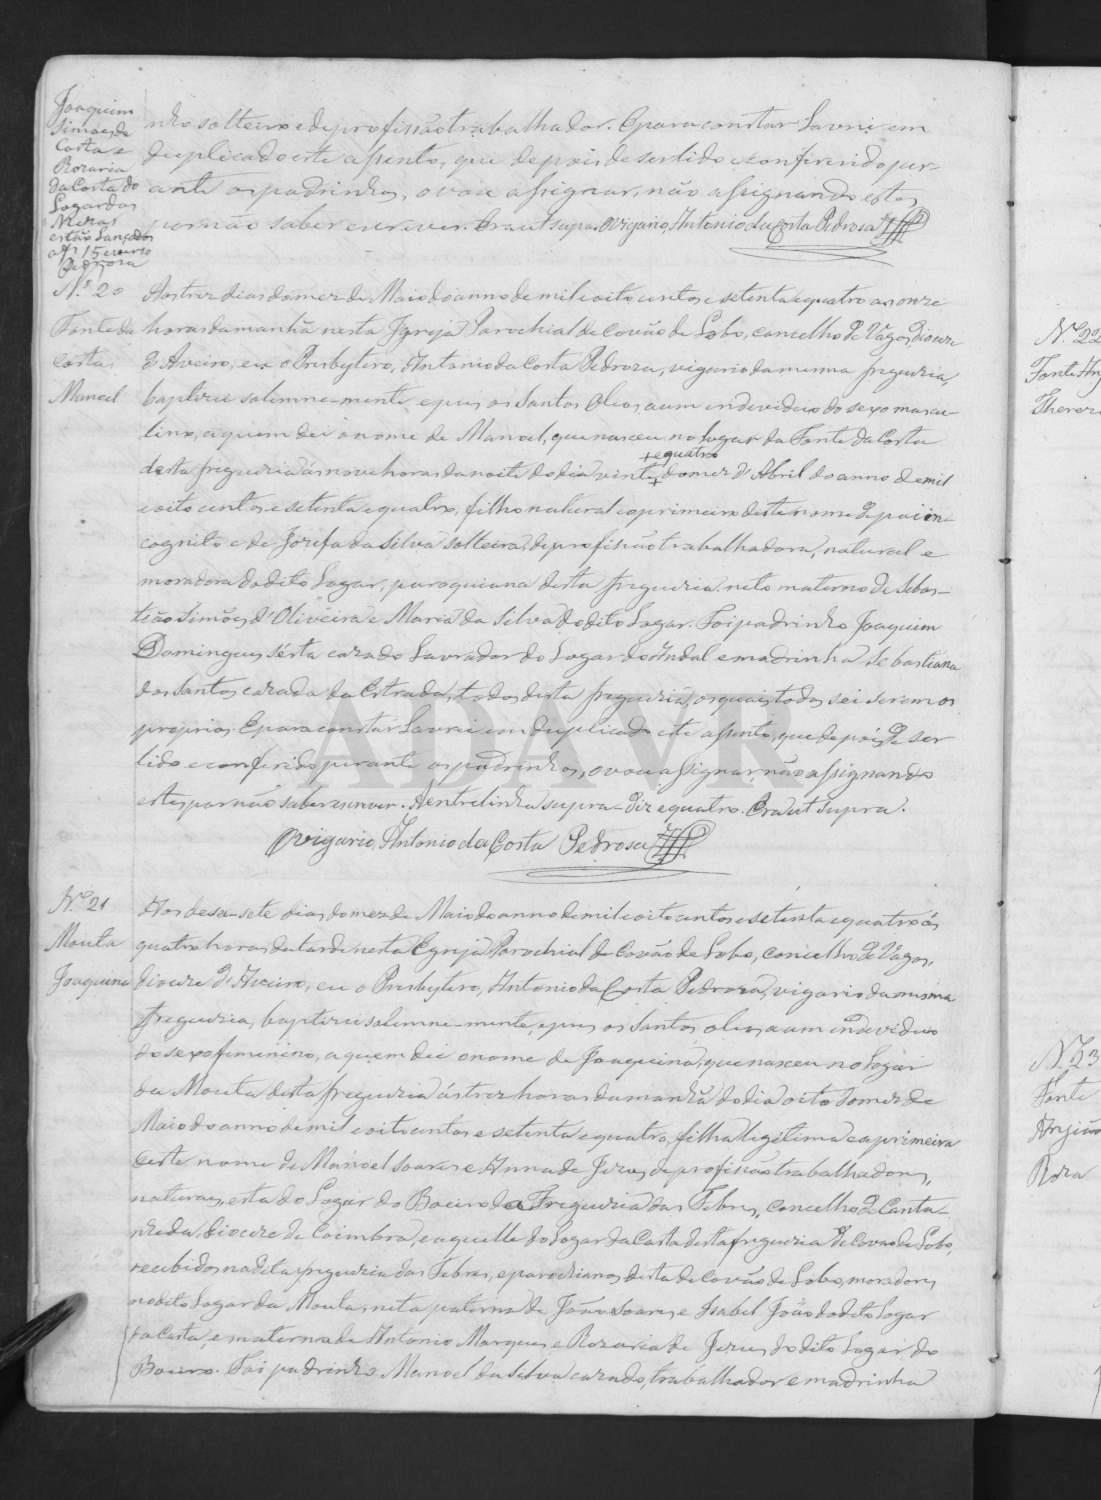 Joaquim
Simões da
Costa e
Rozaria
da Costa do
Logar das
estão lançados
nho solteiro e de profissão trabalhador. E para constar lavrei em
duplicado este assento, que depois de ser lido e conferido per-
ante os padrinhos, o vou assignar, não assignando estes
por não saber escrever. Era ut supra. O vigario, Antonio da Costa Pedrosa
N.º 20
Fonte da
Costa
Manoel
Aos trez dias do mez de Maio do anno de mil e oito centos e setenta e quatro as onze
horas da manhã nesta Igreja Parochial de Covão de Lobo, concelho de Vagos, diocese
d'Aveiro, eu o Presbytero, Antonio da Costa Pedroza, vigario da mesma freguezia,
baptizei solemne-mente e puz os Santos Oleos, a um individuo do sexo mascu-
lino, a quem dei o nome de Manoel, que nasceu no lugar da Fonte da Costa
+ e quatro
desta freguezia ás nove horas da noite do dia vinte + do mez d'Abril do anno de mil
e oito centos e setenta e quatro, filho natural e o primeiro deste nome de pai in-
cognito e de Jozefa da Silva solteira, de profissão trabalhadora, natural e
moradora do dito Logar, paroquiana desta freguezia, neto materno de Sebas-
tião Simões d'Oliveira e Maria da Silva do dito Logar. Foi padrinho Joaquim
Domingues cazado Lavrador do Logar do Andal e madrinha Sebastiana
dos Santos cazada da Estrada, todos desta freguezia, os quais todos sei serem os
proprios. E para constar Lavrei em duplicado este assento, que depois de ser
lido e conferido perante os padrinhos, o vou assignar, não assignando
estes por não saber escrever. A entrelinha supra-diz e quatro. Era ut supra.
O vigario, Antonio da Costa Pedrosa
N.º 21
Mouta
Joaquina
Aos desa-sete dias do mez de Maio do anno de mil e oito centos e setenta e quatro ás
quatro horas da tarde nesta Egreja Parochial de Covão de Lobo, concelho de Vagos,
diocese d'Aveiro, eu o Presbytero, Antonio da Costa Pedroza, vigario da mesma
freguezia, baptizei solemne-mente, e puz os Santos oleos, a um individuo
do sexo feminino, a quem dei o nome de Joaquina, que nasceu no Logar
da Mouta desta freguezia ás trez horas da manhã do dia oito do mez de
Maio do anno de mil e oito centos e setenta e quatro, filha legitima e a primeira
deste nome de Manoel Soares e Anna de Jezus, de profissão trabalhadores,
naturaes, esta do Logar do Boeiro da Freguezia das Febres, concelho de Canta-
nhede, diocese de Coimbra, e aquelle do Logar da Costa desta freguezia de Covão de Lobo,
recebidos na dita freguezia das Febres, e parochianos desta de Covão de Lobo, moradores
no dito Logar da Mouta, neta paterna de João Soares e Isabel João do dito Logar
da Costa, e materna de Antonio Marques e Rozaria de Jezus do dito Logar do
Boeiro. Foi padrinho Manoel da Silva cazado, trabalhador e madrinha
N.º 22
N.º 23
Fonte
Roza
ADAVR